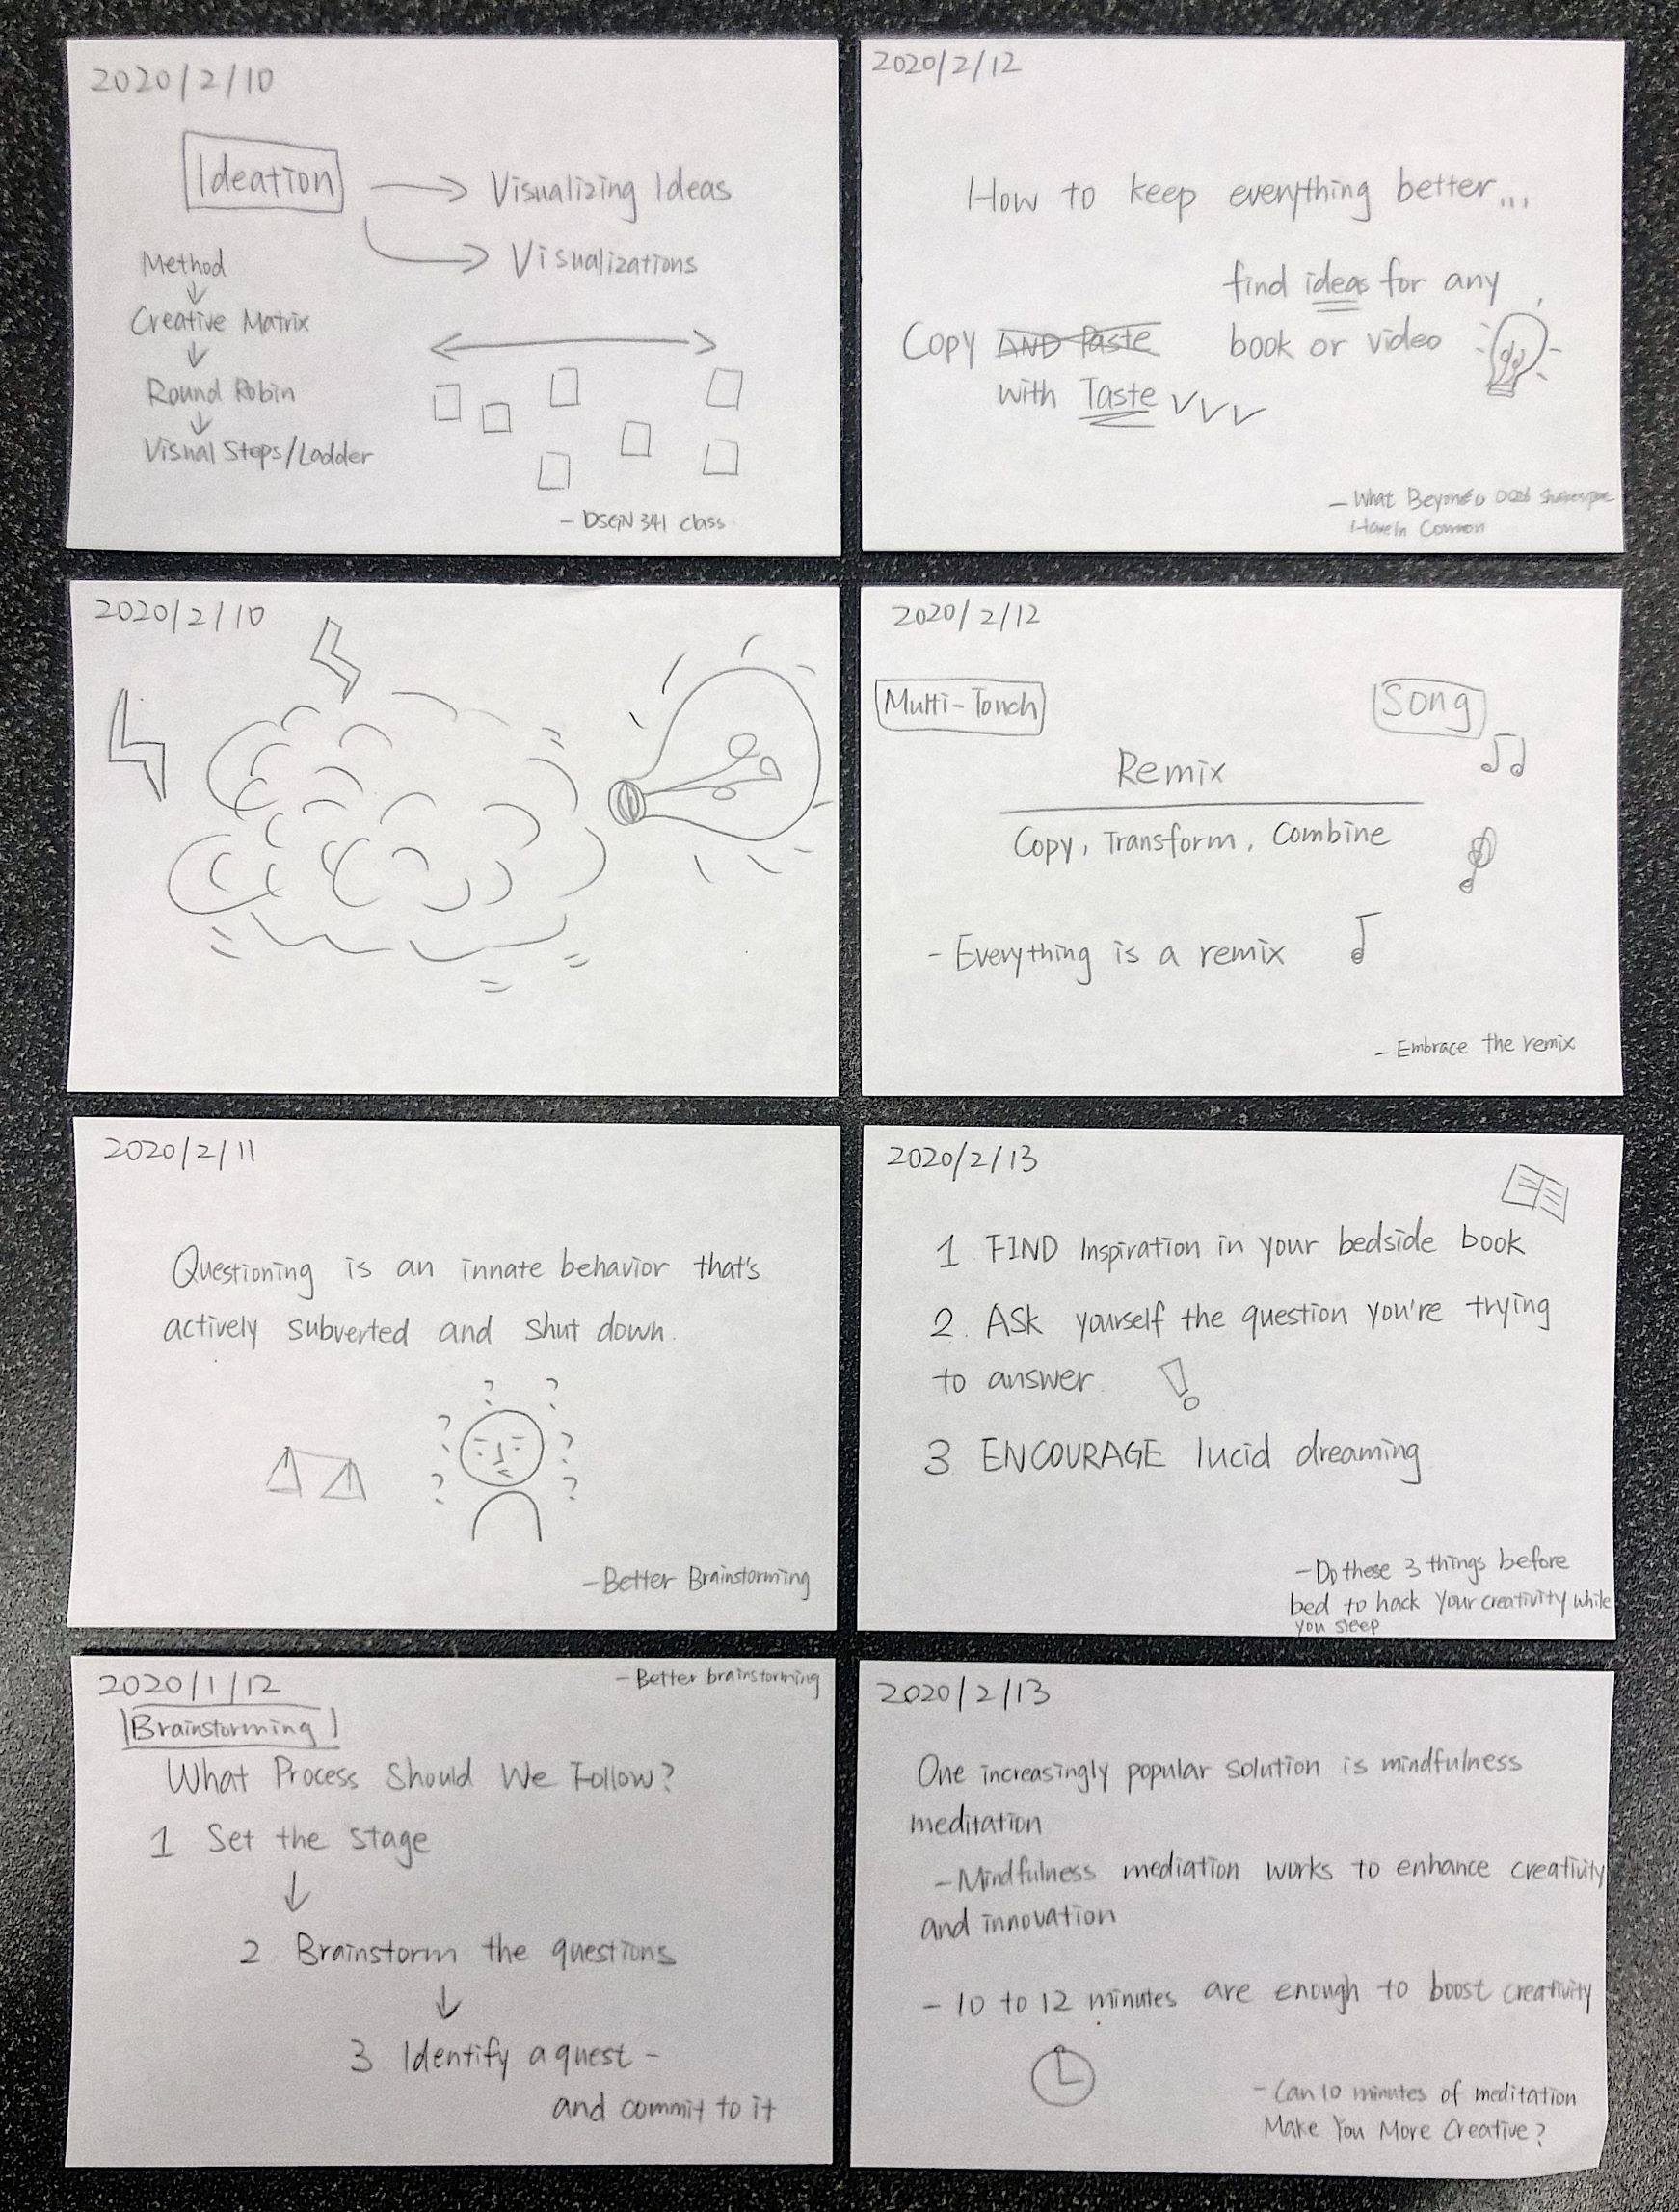 2020/2/10
Ideation
Visualizing Ideas
Visualizations
Method
Creative Matrix
Round Robin
Visual Steps/Ladder
- DSGN 341 class
2020/2/10
2020/2/11
Questioning is an innate behavior that's
actively subverted and shut down.
-Better Brainstorming
2020/1/12
-Better brainstorming
Brainstorming
What Process Should We Follow?
1 Set the stage
2 Brainstorm the questions
3 Identify a quest -
and commit to it
2020/2/12
How to keep everything better...
find ideas for any
book or video
Copy AND Paste
with Taste
- What Beyoncé and Shakespeare
Have In Common
2020/2/12
Multi-Touch
Song
Remix
Copy, Transform, Combine
- Everything is a remix
- Embrace the remix
2020/2/13
1 FIND Inspiration in your bedside book
2. ASK yourself the question you're trying
to answer
3 ENCOURAGE lucid dreaming
-Do these 3 things before
bed to hack your creativity while
you sleep
2020/2/13
One increasingly popular solution is mindfulness
meditation
-Mindfulness mediation works to enhance creativity
and innovation
- 10 to 12 minutes are enough to boost creativity
- Can 10 minutes of meditation
Make You More Creative?